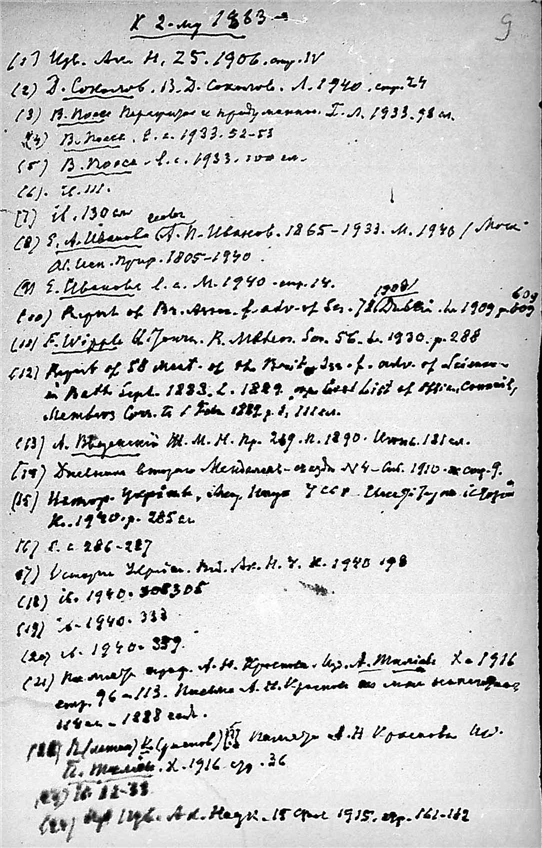 К 2-му 1883
9
(1) Изв. Ак. Н. 25. 1906. стр. IV
(2) Д. Соколов. В. Д. Соколов. Л. 1940. стр. 24
(3) В. Поссе Пережитое и продуманное. I. Л. 1933. 98 сл.
(4) В. Поссе. l. c. 1933. 52-53
(5) В. Поссе. l. c. 1933. 100 сл.
(6). ib. 111.
(7) ib. 130 сл
(8) Е. А. Иванова (А. П. Иванов. 1865-1933. М. 1940 / Моск
Об. Исп. Прир. 1805-1940.
(9) Е. Иванова l. c. М. 1940. стр. 14.
(10) Report of Br. Assoc. f. adv. of Sci. 78 1908 Dublin. L. 1909 p. 609
(11) F. Wipple Q. Journ. R. Meteor. Soc. 56. L. 1930. p. 288
(12) Report of 58 Meet. of the Brit. Ass. f. adv. of Science
in Bath Sept. 1888. L. 1889. List of Office, Council,
Members Corr. to 1889. p. 111 сл.
(13) А. Введенский Ж. М. Н. Пр. 269. П. 1890. Июнь. 181 сл.
(14) Дневник второго Менделеев. съезда N 4 - Спб. 1910. стр. 9.
(15) Истор. України, Наук УССР. історії
К. 1940. p. 285 сл
(16) l. c 286-287
(17) История Украины. Изд. Ак. Н. У. К. 1940 198
(18) ib. 1940. 303 305
(19) ib. 1940. 333
(20) ib. 1940. 339.
(21) Памяти проф. А. Н. Краснова. Изд. А. Х. 1916
стр. 96-113. Письма А. Н. Краснова ко мне напечатаны
114 сл. - 1888 год.
(22) П К Памяти А. Н Краснова Изд.
Х. 1916 стр. 36
(23) ib. 32-33
(24) Изв. Ак. Наук. 15 1915. стр. 161-162